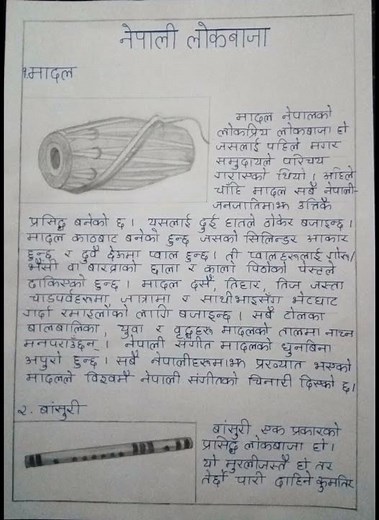 नेपाली लोकबाजा
१.मादल
मादल नेपालको
लोकप्रिय लोकबाजा हो
जसलाई पहिले मगर
समुदायले परिचय
गराएको थियो। अहिले
चाँहि मादल सबै नेपाली
जनजातिमाझ उत्तिकै
प्रसिद्ध बनेको छ। यसलाई दुई हातले ठोकेर बजाइन्छ।
मादल काठबाट बनेको हुन्छ जसको सिलिन्डर आकार
हुन्छ र दुवै छेऊमा प्वाल हुन्छ। ती प्वालहरूलाई गोरु/
भैंसी वा बाख्राको छाला र कालो पिठोको पेस्टले
ढाकिएको हुन्छ। मादल दसैं, तिहार, तिज जस्ता
चाडपर्वहरूमा, जात्रामा र साथीभाइसँग भेटघाट
गर्दा रमाइलोको लागि बजाइन्छ। सबै टोलका
बालबालिका, युवा र वृद्धहरू मादलको तालमा नाच्न
मनपराउँछन्। नेपाली संगीत मादलको धुनबिना
अपुरो हुन्छ। सबै नेपालीहरूमाझ प्रख्यात भएको
मादलले विश्वमै नेपाली संगीतको चिनारी दिएको छ।
२. बांसुरी
बांसुरी एक प्रकारको
प्रसिद्ध लोकबाजा हो।
यो मुरलीजस्तै हो तर
तेर्छो पारी दाहिने कुमतिर